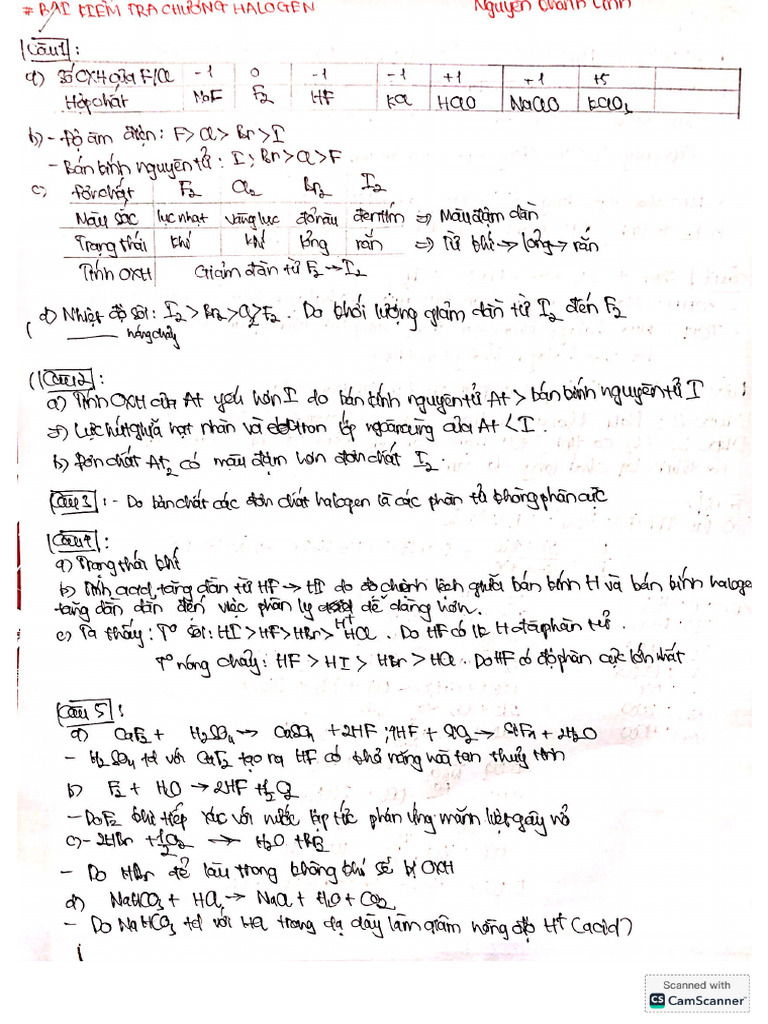 # BÀI KIỂM TRA CHƯƠNG HALOGEN Nguyễn Khánh Linh
Câu 1:
a) Số OXH của F/Cl -1 0 -1 -1 +1 +1 +5
Hợp chất NaF F2 HF KCl HClO NaClO KClO3
b) - Độ âm điện: F > Cl > Br > I
- Bán kính nguyên tử: I > Br > Cl > F.
c) Đơn chất F2 Cl2 Br2 I2
Màu sắc lục nhạt vàng lục đỏ nâu đen tím => Màu đậm dần
Trạng thái khí khí lỏng rắn => Từ khí -> lỏng -> rắn
Tính OXH Giảm dần từ F2 -> I2
d) Nhiệt độ sôi: I2 > Br2 > Cl2 > F2. Do khối lượng giảm dần từ I2 đến F2
nóng chảy
Câu 2:
a) Tính OXH của At yếu hơn I do bán kính nguyên tử At > bán kính nguyên tử I
=> Lực hút giữa hạt nhân và electron lớp ngoài cùng của At < I.
b) Đơn chất At2 có màu đậm hơn đơn chất I2.
Câu 3: - Do bản chất các đơn chất halogen là các phân tử không phân cực
Câu 4:
a) Trạng thái khí
b) Tính acid tăng dần từ HF -> HI do độ chênh lệch giữa bán kính H và bán kính haloge
tăng dần dẫn đến việc phân ly H+ dễ dàng hơn.
c) Ta thấy: T° sôi: HI > HF > HBr > HCl. Do HF có lk H đa phân tử.
T° nóng chảy: HF > HI > HBr > HCl. Do HF có độ phân cực lớn nhất
Câu 5:
a) CaF2 + H2SO4 -> CaSO4 + 2HF ; 4HF + SiO2 -> SiF4 + 2H2O
- H2SO4 td với CaF2 tạo ra HF có khả năng hòa tan thuỷ tinh
b) F2 + H2O -> 2HF + 1/2 O2
- Do F2 khi tiếp xúc với nước lập tức phản ứng mãnh liệt gây nổ
c) - 2HBr + 1/2 O2 -> H2O + Br2
- Do HBr để lâu trong không khí sẽ bị OXH
d) NaHCO3 + HCl -> NaCl + H2O + CO2
- Do NaHCO3 td với HCl trong dạ dày làm giảm nồng độ H+ (acid)
Scanned with
CS CamScanner